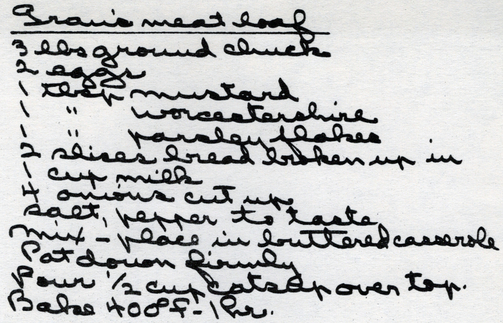 Gran's meat loaf
3 lbs ground chuck
2 eggs
1 tbsp mustard
1 " worcestershire
1 " parsley flakes
2 slices bread broken up in
1 cup milk
4 onions cut up
salt, pepper to taste
Mix - place in buttered casserole
Pat down firmly
Pour 1/2 cup catsup over top.
Bake 400°F - 1 hr.